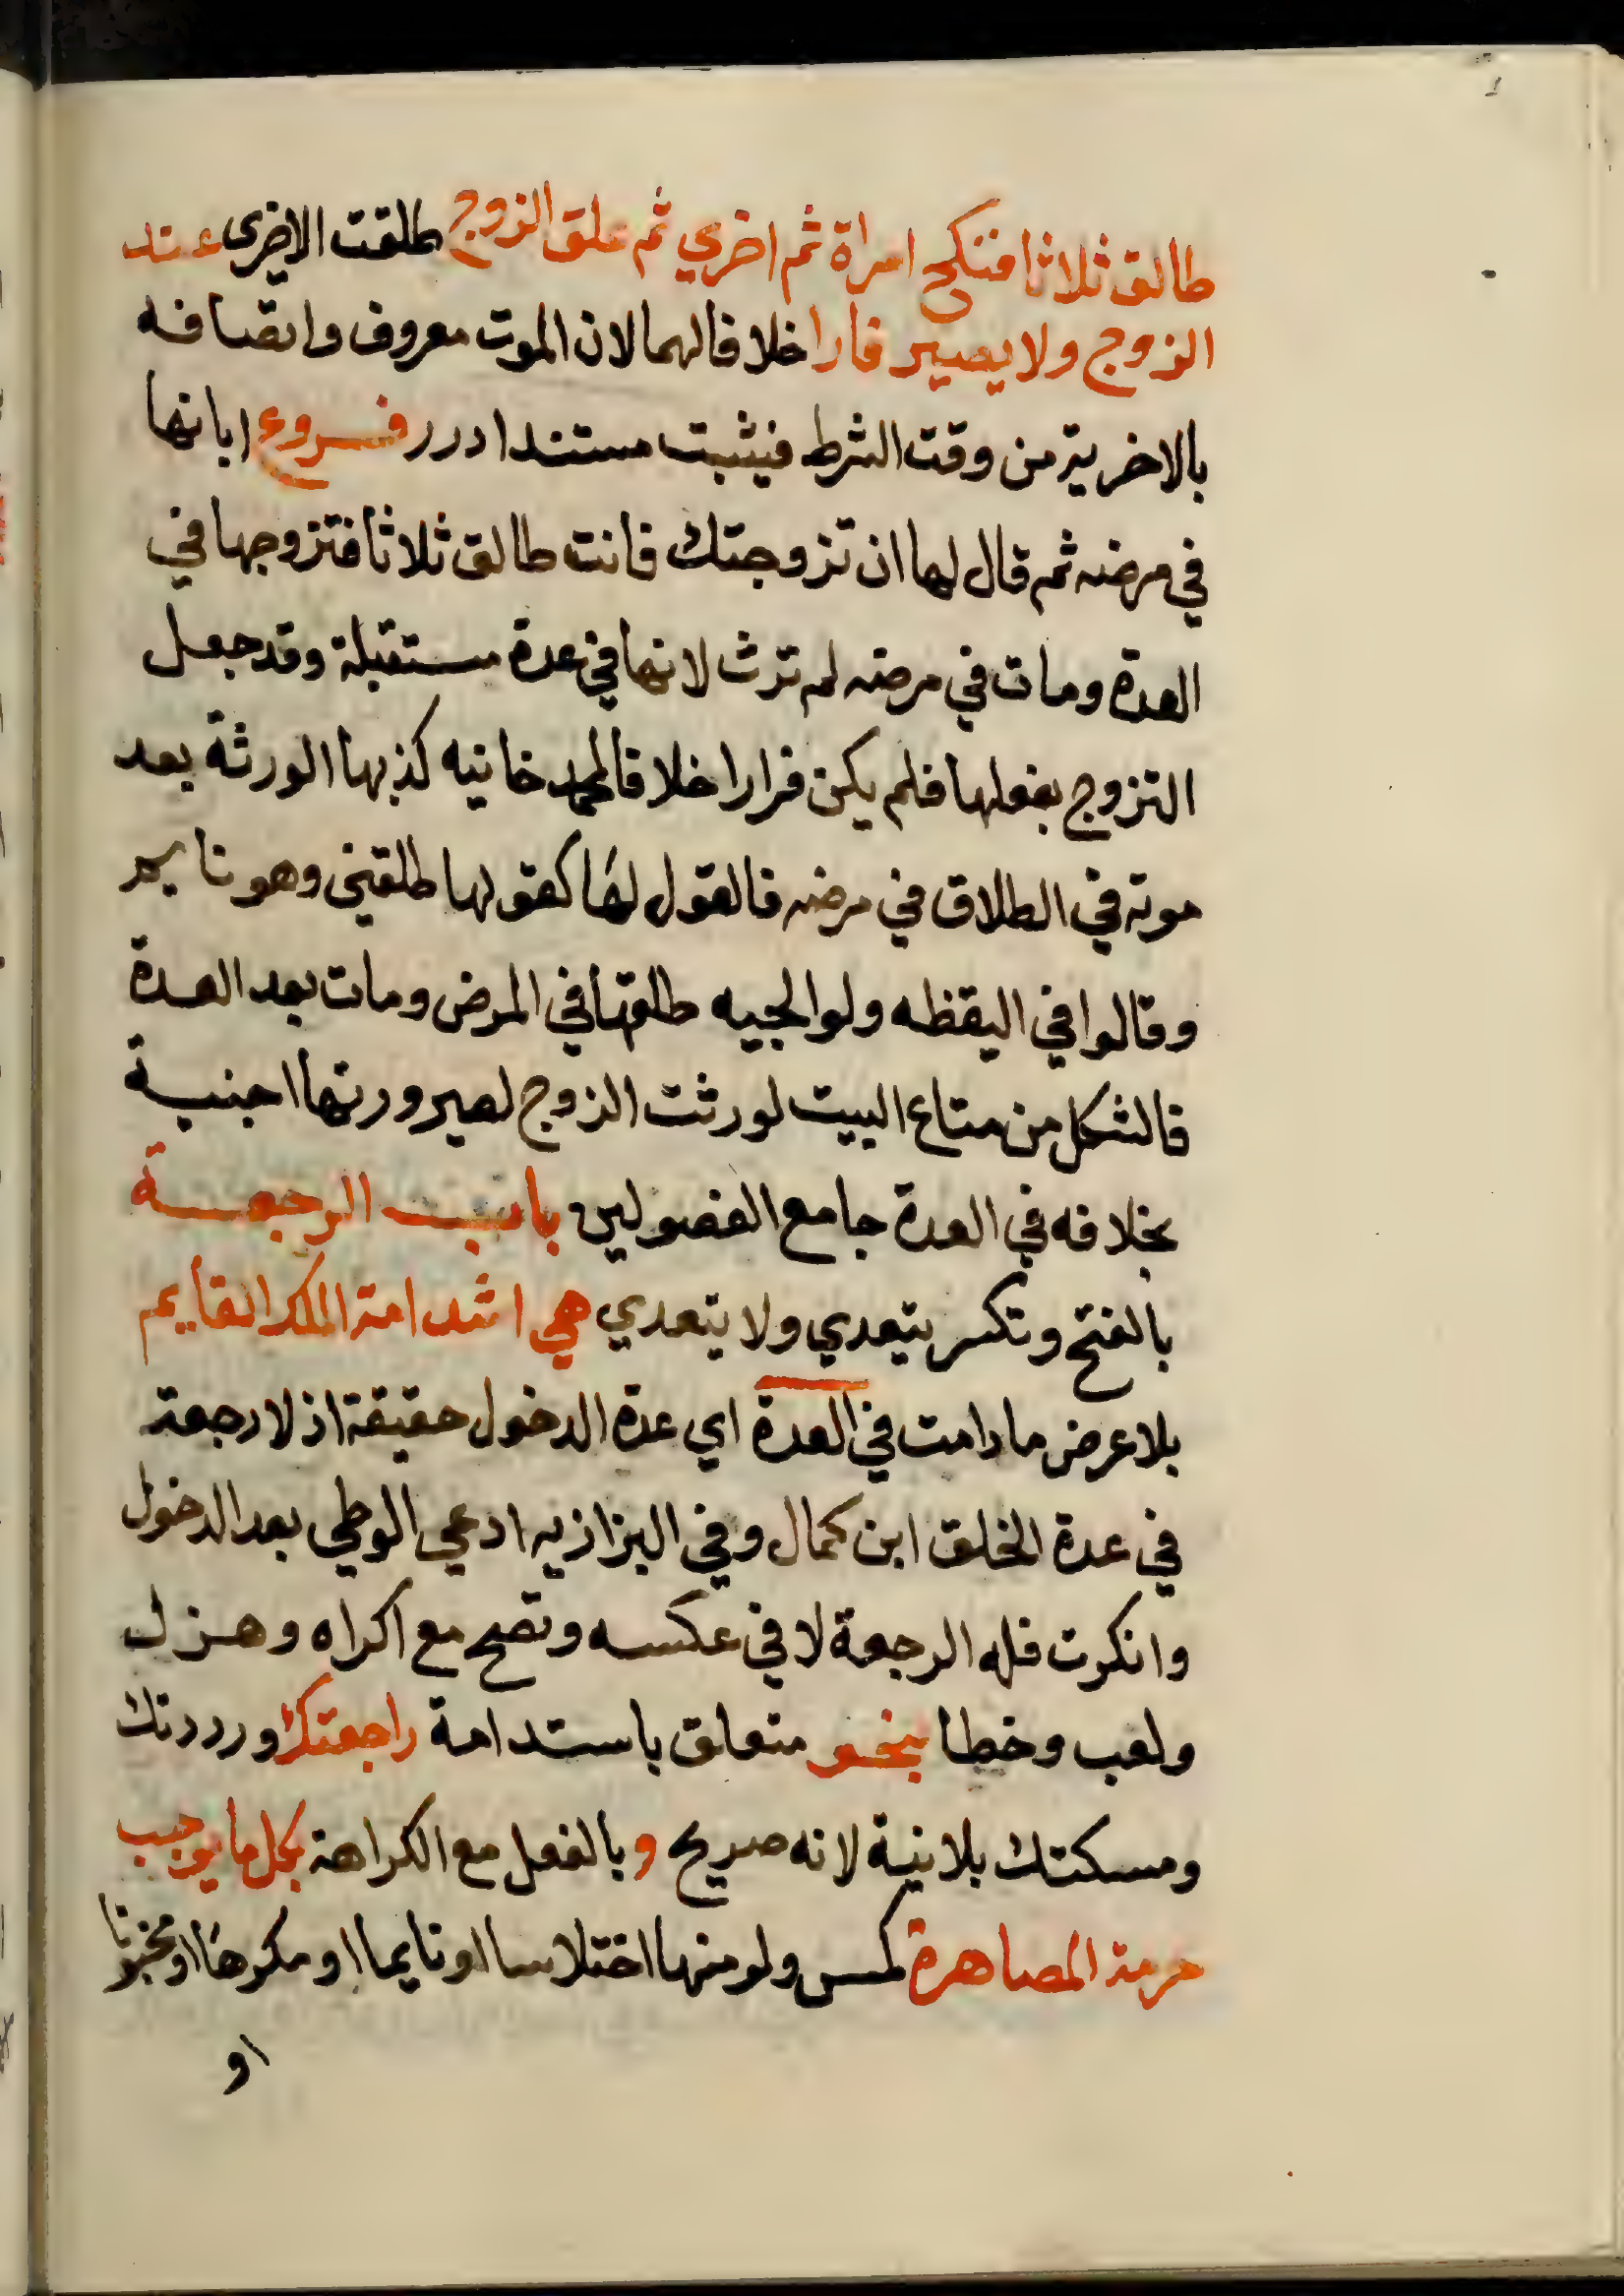 طالق ثلاثا فنكح امراة ثم اخري ثم علق الزوج طلقت الاخرى عند
الزوج ولا يصير فارا خلافا لهما لان الموت معروف واتصافه
بالاخرية من وقت الشرط فيثبت مستندا درر فروع ابانها
في مرضه ثم قال لها ان تزوجتك فانت طالق ثلاثا فتزوجها في
العدة ومات في مرضه لم ترث لانها في عدة مستقبلة وقد جعل
التزوج بفعلها فلم يكن فرارا خلافا لمحمد خانيه كذبها الورثة بعد
موته في الطلاق في مرضه فالقول لها كقولها طلقني وهو نايم
وقالوا في اليقظه ولوالجيه طلقها في المرض ومات بعد العدة
فالشكل من متاع البيت لورثت الزوج لصيرورتها اجنبية
بخلافه في العدة جامع الفصولين باب الرجعة
بالفتح وتكسر يتعدي ولا يتعدي هي استدامة الملك القايم
بلا عرض ما دامت في العدة اي عدة الدخول حقيقة اذ لا رجعة
في عدة الخلق ابن كمال وفي البزازيه ادعي الوطي بعد الدخول
وانكرت فله الرجعة لا في عكسه وتصح مع اكراه وهزل
ولعب وخطا بنحو متعلق باستدامة راجعتك ورددتك
ومسكتك بلا نية لانه صريح وبالفعل مع الكراهة بكل ما يوجب
حرمة المصاهرة كمس ولو منها اختلاسا او نايما او مكرها او مجنونا
او